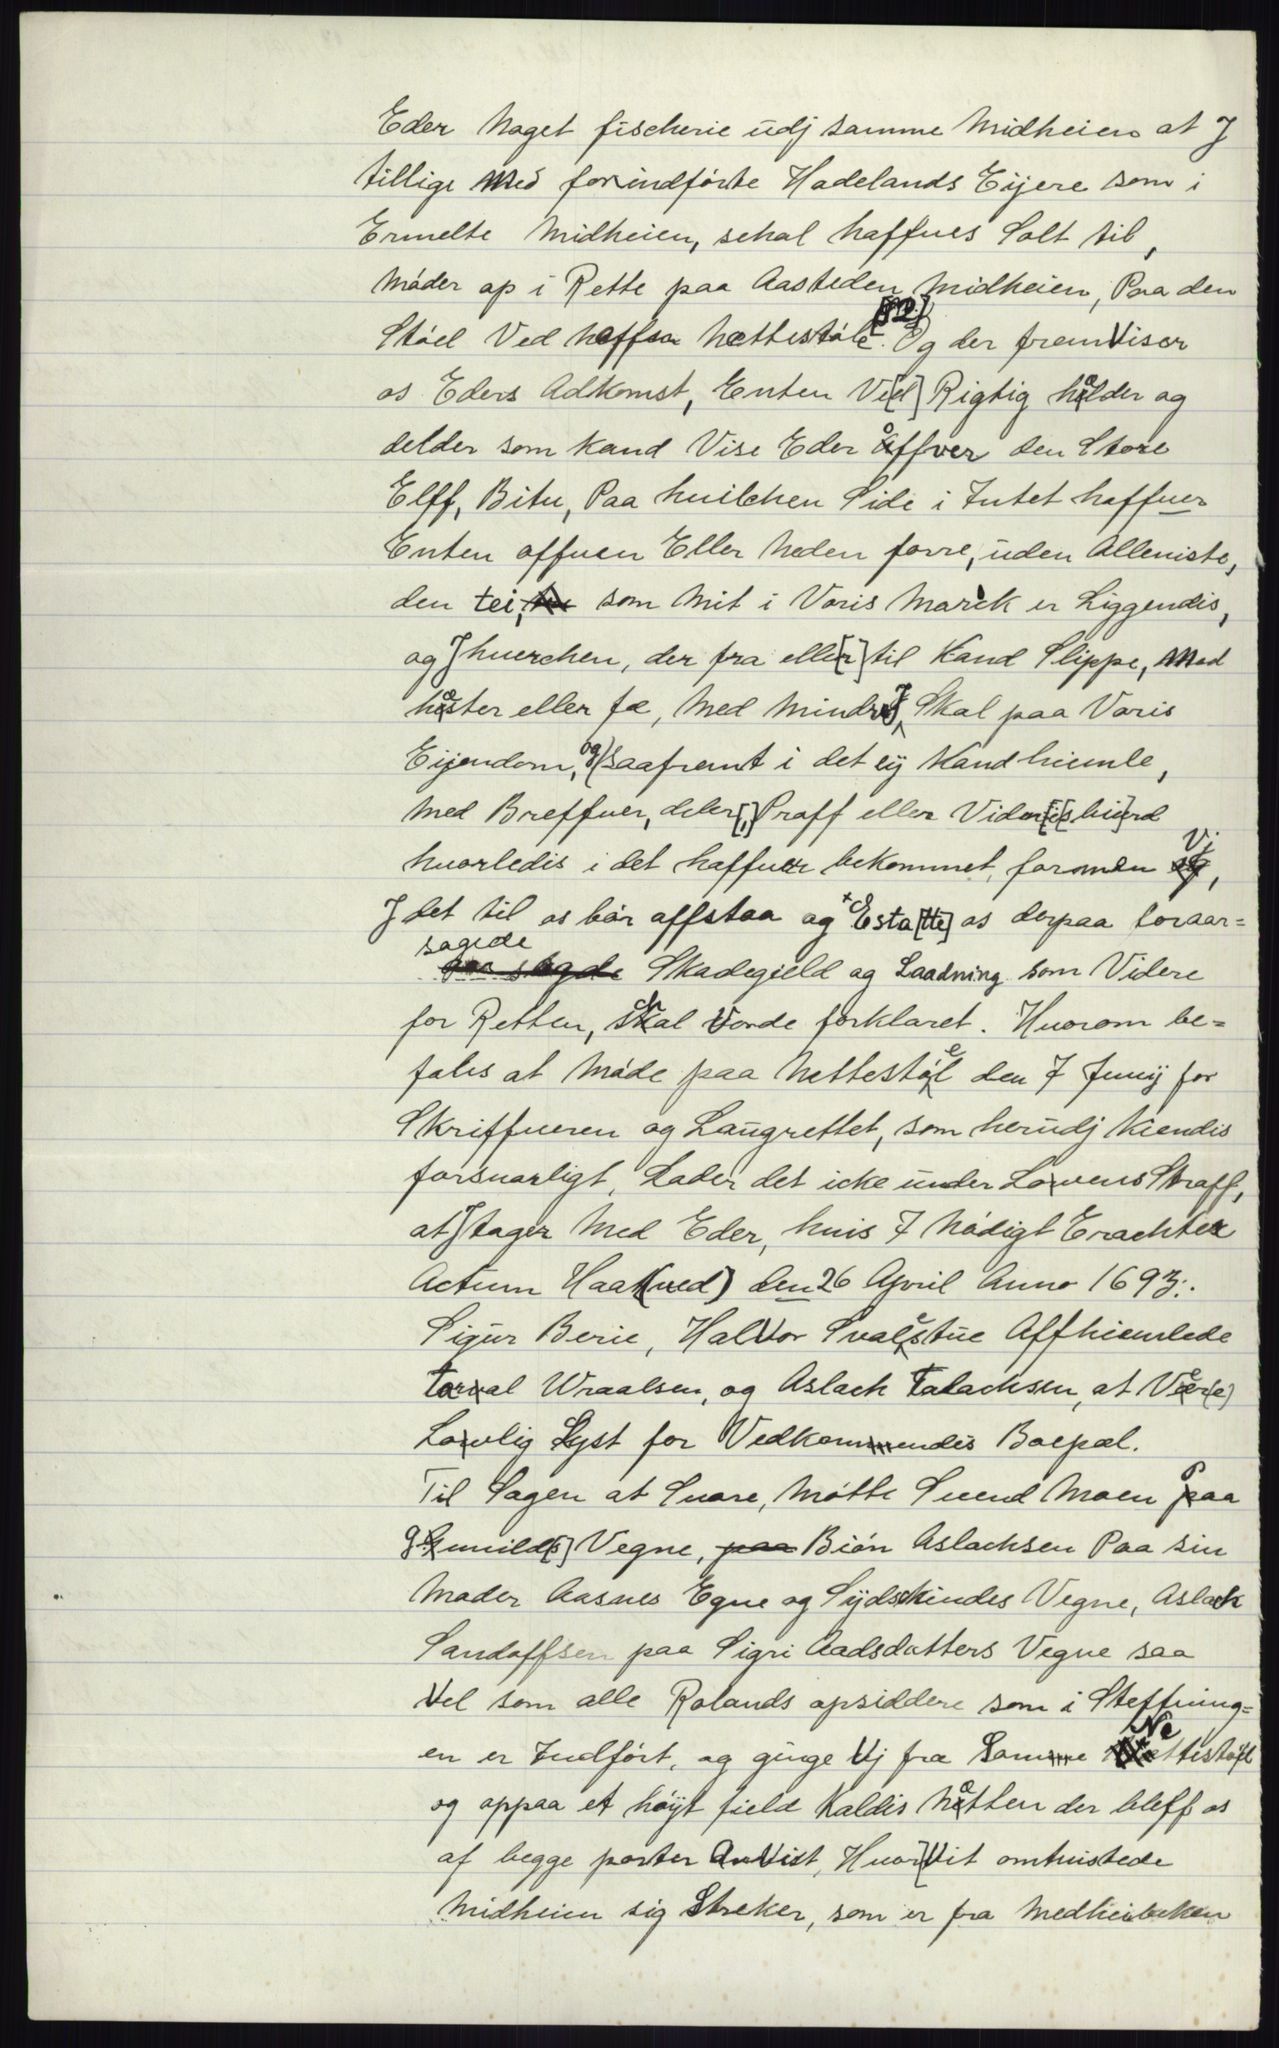 Eder Noget fischerie udj samme Midheien at J
tillige Med forindførte Hadelands Eijere som i
Ermelte Midheien, schal haffues Solt til,
Møder op i Rette paa Aasteden Midheien, Paa den
Støel Ved Neffn Nettestøle [82] Og der fremViser
os Eders Adkomst, Enten Ve[d] Rigtig holder og
delder som kand Vise Eder offver den Store
Elff, Bitu, Paa huilchen Side i Intet haffuer
Enten offuen Eller Neden forre, uden Alleniste,
den tei, som Mit i Voris March er Liggendis,
og J huerchen, der fra elle[r] til Kand Slippe, Med
hester eller fæ, Med Mindre J Skal paa Voris
Eijendom, og saafremt i det eÿ Kand hiemle,
Med Breffuer, deler[,] Proff eller Viden[is]biu]rd
huorledis i det haffuer bekommet, formen Vj,
J det til os bør affstaa og Esta[tte] os derpaa foraar=
sagede Skadegield og Laadning som Videre
for Retten, schal Vorde forklaret. Huorom be=
fales at Møde paa Nettestøel den 7 Junij for
Skriffueren og Laugrettet, som herudj Kiendis
forsuarligt, Lader det icke under Lovens Straff,
at J tager Med Eder, huis J Nødigt Erachter
Actum Haat(ved) den 26 April Anno 1693:.
Sigur Berie, Halvor Svalestue Affhiemlede
torval Wraalsen, og Aslach Talachsen, at Vær(e)
Lovlig Lyst for Vedkommendis Boepæl.
Til Sagen at Suare, Møtte Suend Moen Paa
gunild[s] Vegne, paa Biøn Aslachsen Paa sin
Moder Aasnes Egne og Sÿdschindes Vegne, Aslach
Sandoffsen paa Sigri Aadsdatters Vegne saa
Vel som alle Rolands opsiddere som i Steffning=
en er Indført, og ginge Vj fra Samme Nettistøel
og oppaa et høÿt field Kaldis Notten der bleff os
af begge parter AnVist, Huor Vit omtuistede
Midheien sig Streker, som er fra Medheibeken